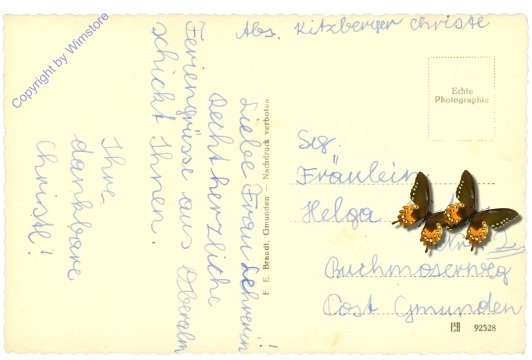 Copyright by Wimstore
Abs. Kitzberger Christl
Liebe Frau Lehrerin!
Recht herzliche
Feriengrüsse aus Oberalm
schickt Ihnen.
Ihre
dankbare
Christl!
F. E. Brandt, Gmunden — Nachdruck verboten
Echte
Photographie
Sig.
Fräulein
Helga
Nr. 2
Buchmoserweg
Post Gmunden
92528